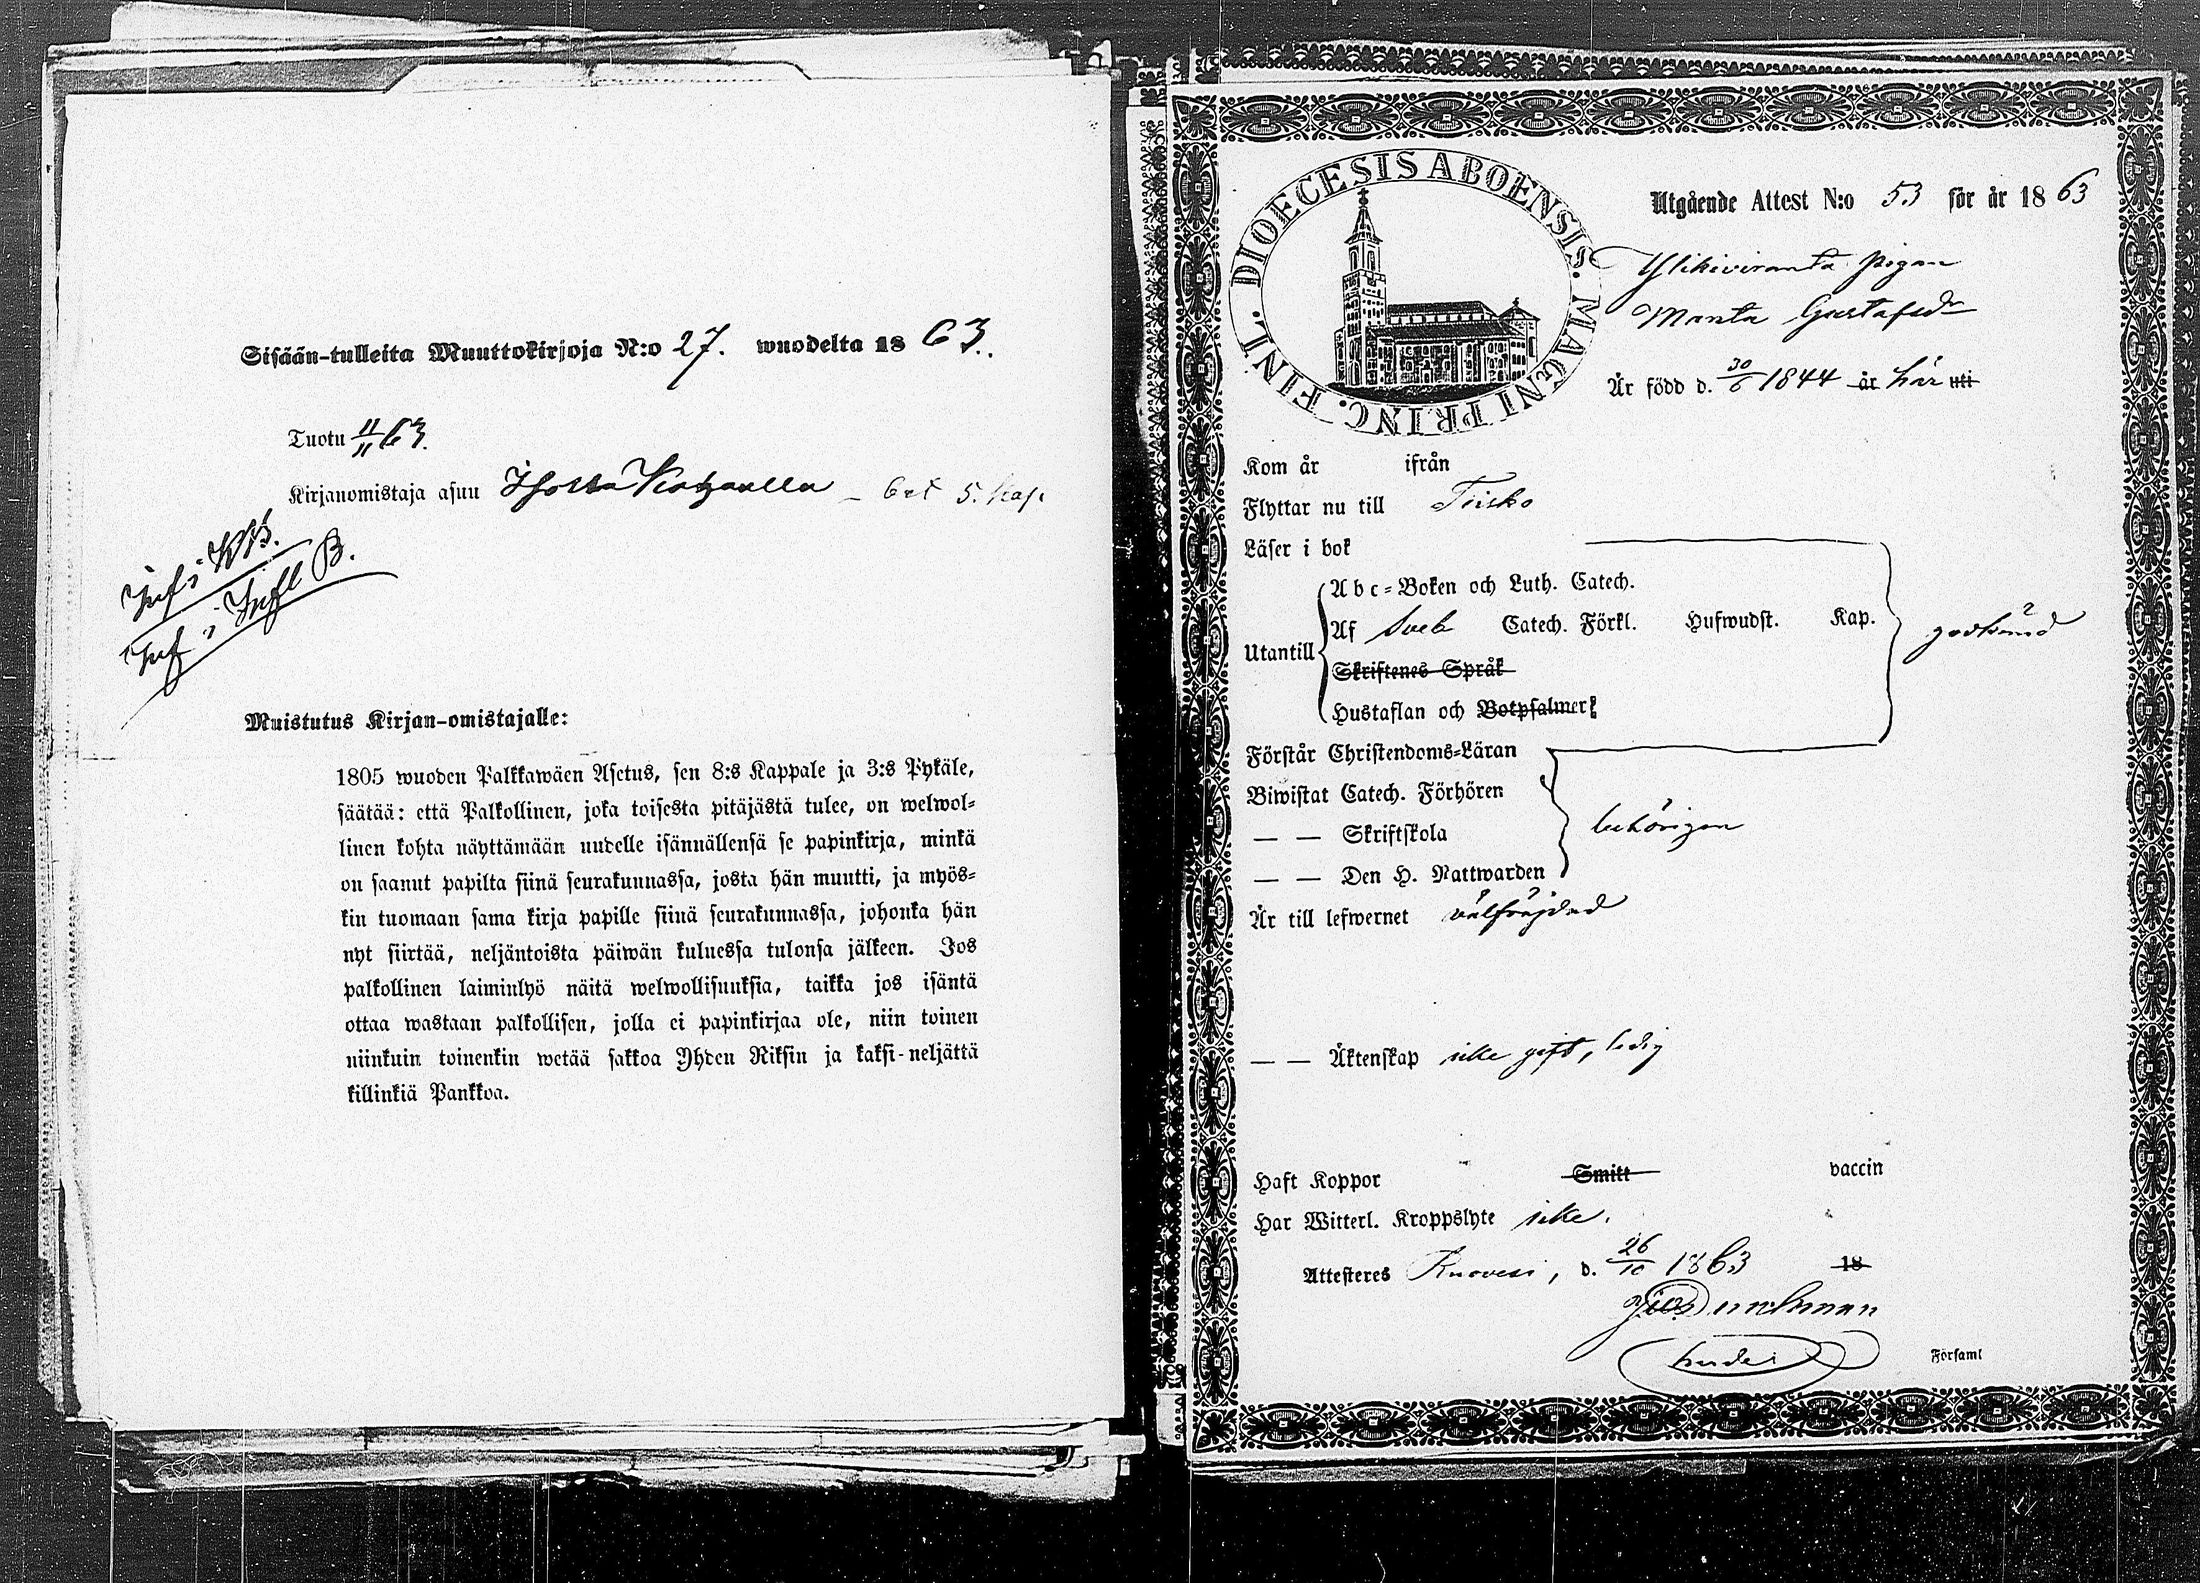 Sisään-tulleita Muuttokirjoja N:o 27. wuodelta 18 63.
Tuotu 11/11 63.
Kirjanomistaja asuu
Inf i KB.
Inf i Infl B.
Muistutus Kirjan-omistajalle:
1805 wuoden Palkkawäen Asetus, sen 8:s Kappale ja 3:s Pykäle,
säätää: että Palkollinen, joka toisesta pitäjästä tulee, on welwol=
linen kohta näyttämään uudelle isännällensä se papinkirja, minkä
on saanut papilta siinä seurakunnassa, josta hän muutti, ja myös=
kin tuomaan sama kirja papille siinä seurakunnassa, johonka hän
nyt siirtää, neljäntoista päiwän kuluessa tulonsa jälkeen. Jos
palkollinen laiminlyö näitä welwollisuuksia, taikka jos isäntä
ottaa wastaan palkollisen, jolla ei papinkirjaa ole, niin toinen
niinkuin toinenkin wetää sakkoa Yhden Riksin ja kaksi-neljättä
killinkiä Pankkoa.
DIOECESIS ABOENSIS. MAGNI PRINC. FINL.
Utgående Attest N:o 53 för år 18 63
Ylikiviranta pigan
Manta Gustafsdr
Är född d. 30/6 1844 år här uti
Kom år ifrån
Flyttar nu till Teisko
Läser i bok
Abc=Boken och Luth. Catech.
Utantill Af Sveb Catech. Förkl. Hufwudst. Kap. godkänd
Skriftenes Språk
Hustaflan och Botpsalmerk
Förstår Christendoms=Läran
Biwistat Catech. Förhören
— — Skriftskola behörigen
— — Den H. Nattwarden
Är till lefwernet välfräjdad
— — Äktenskap icke gift, ledig
Haft Koppor Smitt vaccin
Har Witterl. Kroppslyte icke.
Attesteres Kuovesi, d. 26/10 1863 18
Församl